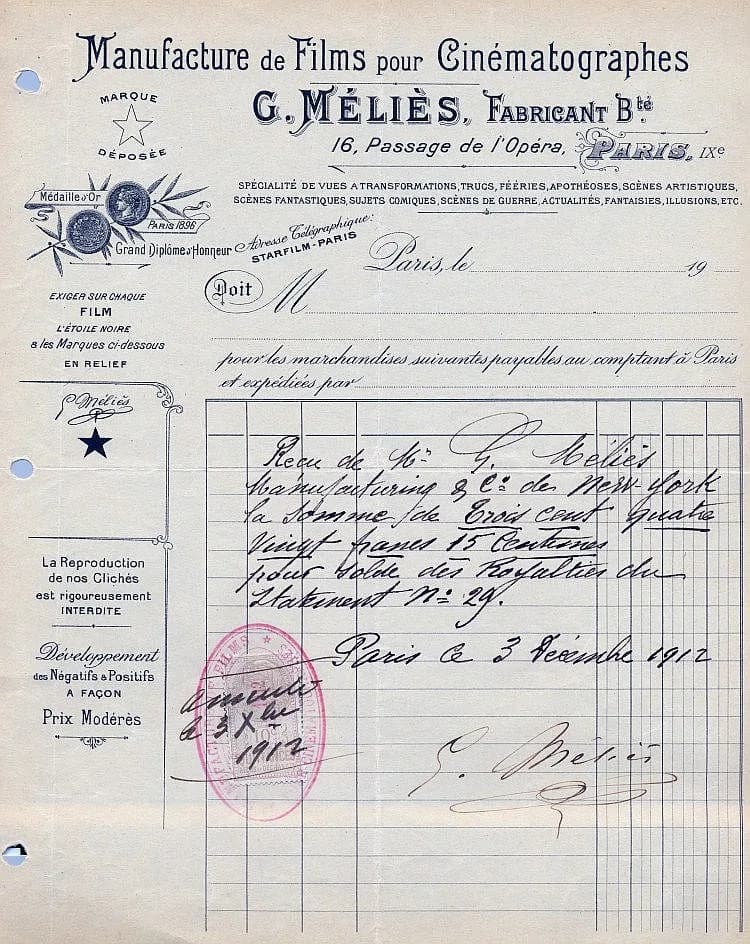 Manufacture de Films pour Cinématographes
MARQUE
DÉPOSÉE
G. MÉLIÈS, FABRICANT Bté
16, Passage de l'Opéra, PARIS, IXe
SPÉCIALITÉ DE VUES A TRANSFORMATIONS, TRUCS, FÉÉRIES, APOTHÉOSES, SCÈNES ARTISTIQUES,
SCÈNES FANTASTIQUES, SUJETS COMIQUES, SCÈNES DE GUERRE, ACTUALITÉS, FANTAISIES, ILLUSIONS, ETC.
Médaille d'Or
PARIS 1896
Grand Diplôme d'Honneur
Adresse Télégraphique:
STARFILM-PARIS
Paris, le 19
Doit M
EXIGER SUR CHAQUE
FILM
L'ÉTOILE NOIRE
& les Marques ci-dessous
EN RELIEF
pour les marchandises suivantes payables au comptant à Paris
et expédiées par
G. Méliès
Reçu de Mr G. Méliès
Manufacturing & Co de New-York
la somme de Trois cent quatre
Vingt francs 15 Centimes
pour solde des Royalties du
Statement No 29.
La Reproduction
de nos Clichés
est rigoureusement
INTERDITE
Développement
des Négatifs & Positifs
A FAÇON
Prix Modérés
Paris ce 3 Décembre 1912
FILMS
annulé
le 3 Xbre
1912
G. Méliès